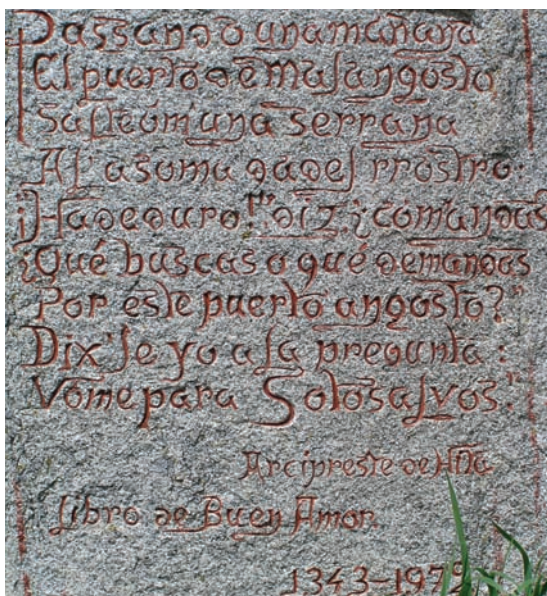 Passando una mañana
El puerto de Malangosto
Salteóm' una serrana
A l'asomada del rrostro.
¡Hadeduro", diz, ¿com'andas
¿Qué buscas o qué demandas
Por éste puerto angosto?"
Dix'le yo a la pregunta:
Vóme para Sotosalvos."
Arcipreste de Hita
Libro de Buen Amor
1343-1979